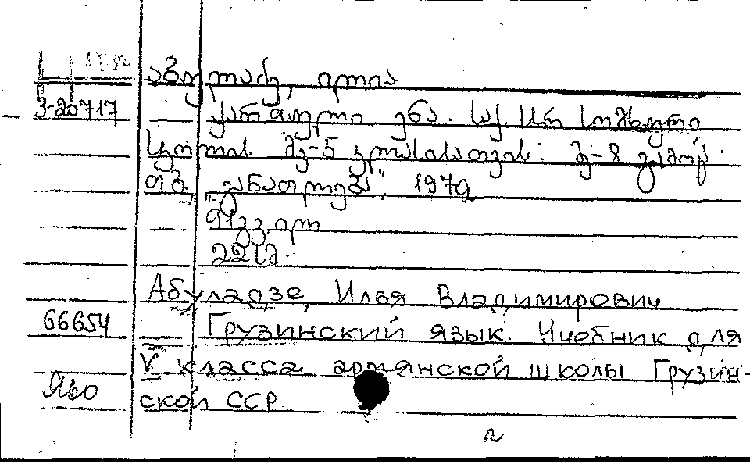 აბულაძე, ილია
3-20717
ქართული ენა. სახ. სსრ სომხური
სკოლის მე-5 კლასისათვის. მე-8 გამოც.
თბ. "განათლება", 1979
22
Абуладзе, Илья Владимирович
66654
Грузинский язык. Учебник для
V класса армянской школы Грузин-
ской ССР